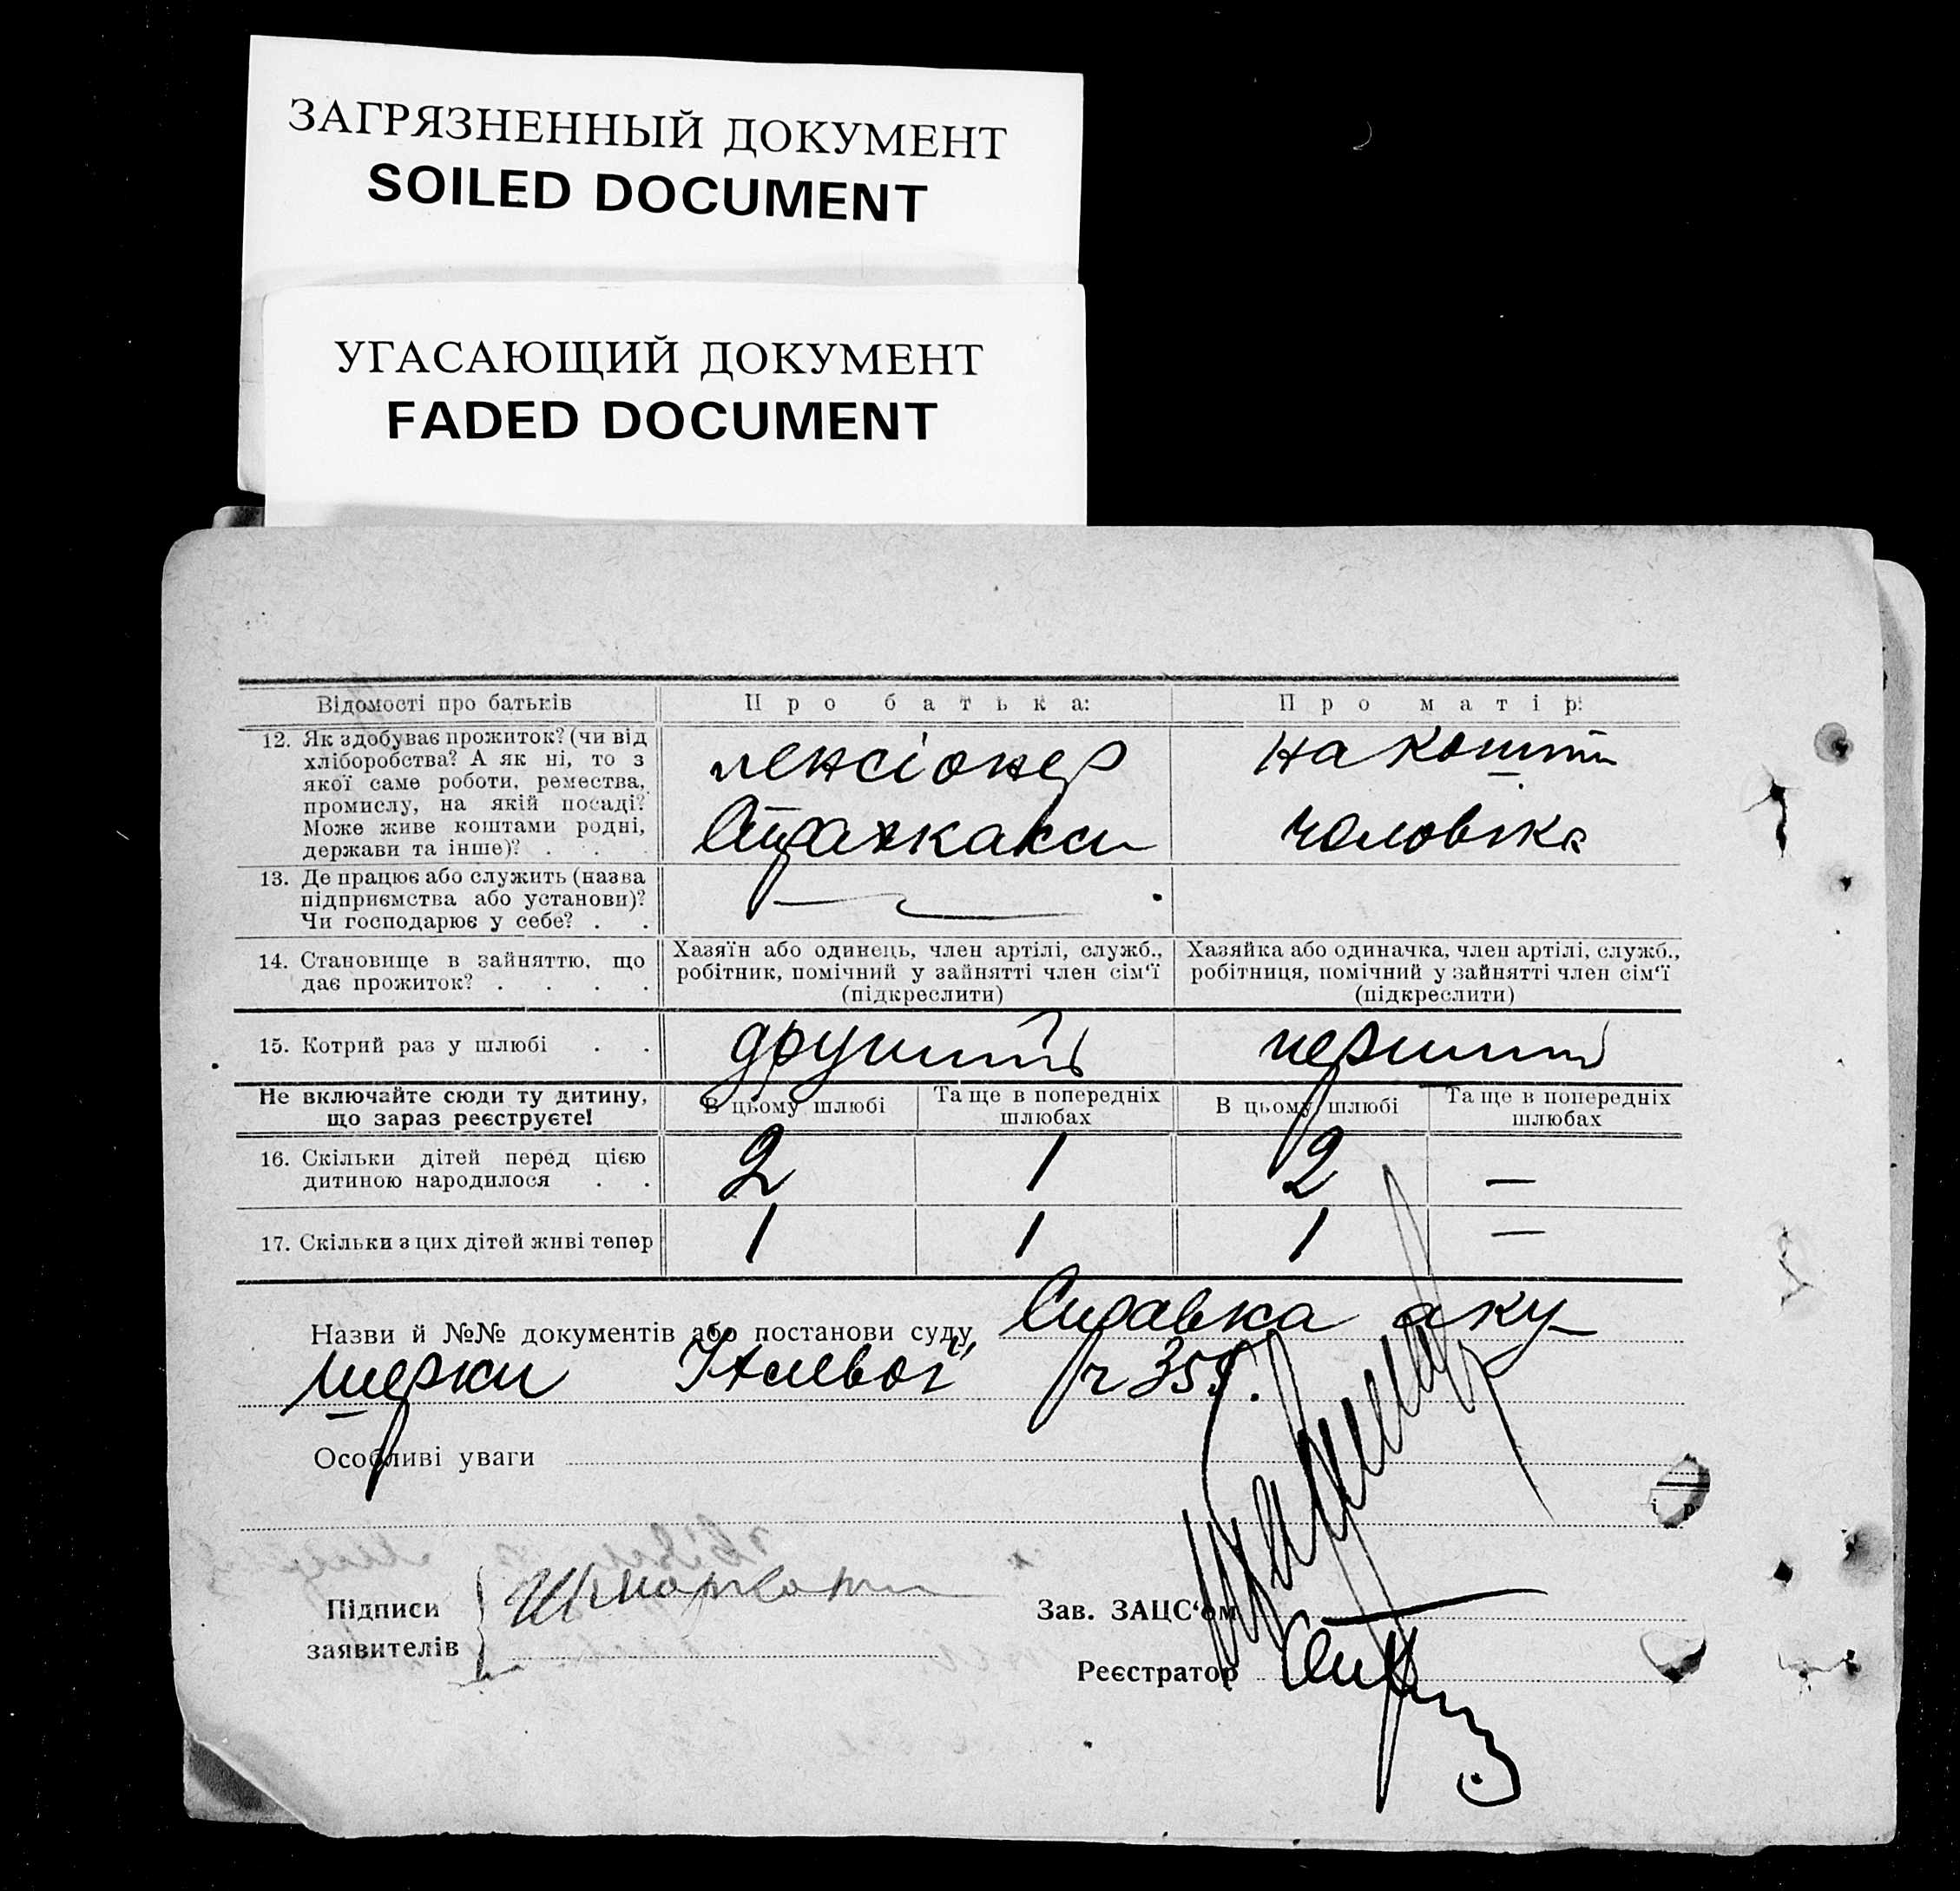 ЗАГРЯЗНЕННЫЙ ДОКУМЕНТ
SOILED DOCUMENT
УГАСАЮЩИЙ ДОКУМЕНТ
FADED DOCUMENT
Відомості про батьків
Про батька:
Про матір:
12. Як здобуває прожиток? (чи від
хліборобства? А як ні, то з
якої саме роботи, ремества,
промислу, на якій посаді?
Може живе коштами родні,
держави та інше)? . . .
пенсіонер
Страхкаси
на кошти
чоловіка
13. Де працює або служить (назва
підприємства або установи)?
Чи господарює у себе? . .
14. Становище в зайняттю, що
дає прожиток? . . . .
Хазяїн або одинець, член артілі, служб.,
робітник, помічний у зайнятті член сім'ї
(підкреслити)
Хазяйка або одиначка, член артілі, служб.,
робітниця, помічний у зайнятті член сім'ї
(підкреслити)
15. Котрий раз у шлюбі . .
другий
перший
Не включайте сюди ту дитину,
що зараз реєструєте!
В цьому шлюбі
Та ще в попередніх
шлюбах
В цьому шлюбі
Та ще в попередніх
шлюбах
16. Скільки дітей перед цією
дитиною народилося . .
2
1
2
—
17. Скільки з цих дітей живі тепер
1
1
1
—
Назви й №№ документів або постанови суду, Справка аку-
шерки 355.
Особливі уваги
Підписи
заявителів
Зав. ЗАЦС'ом
Реєстратор